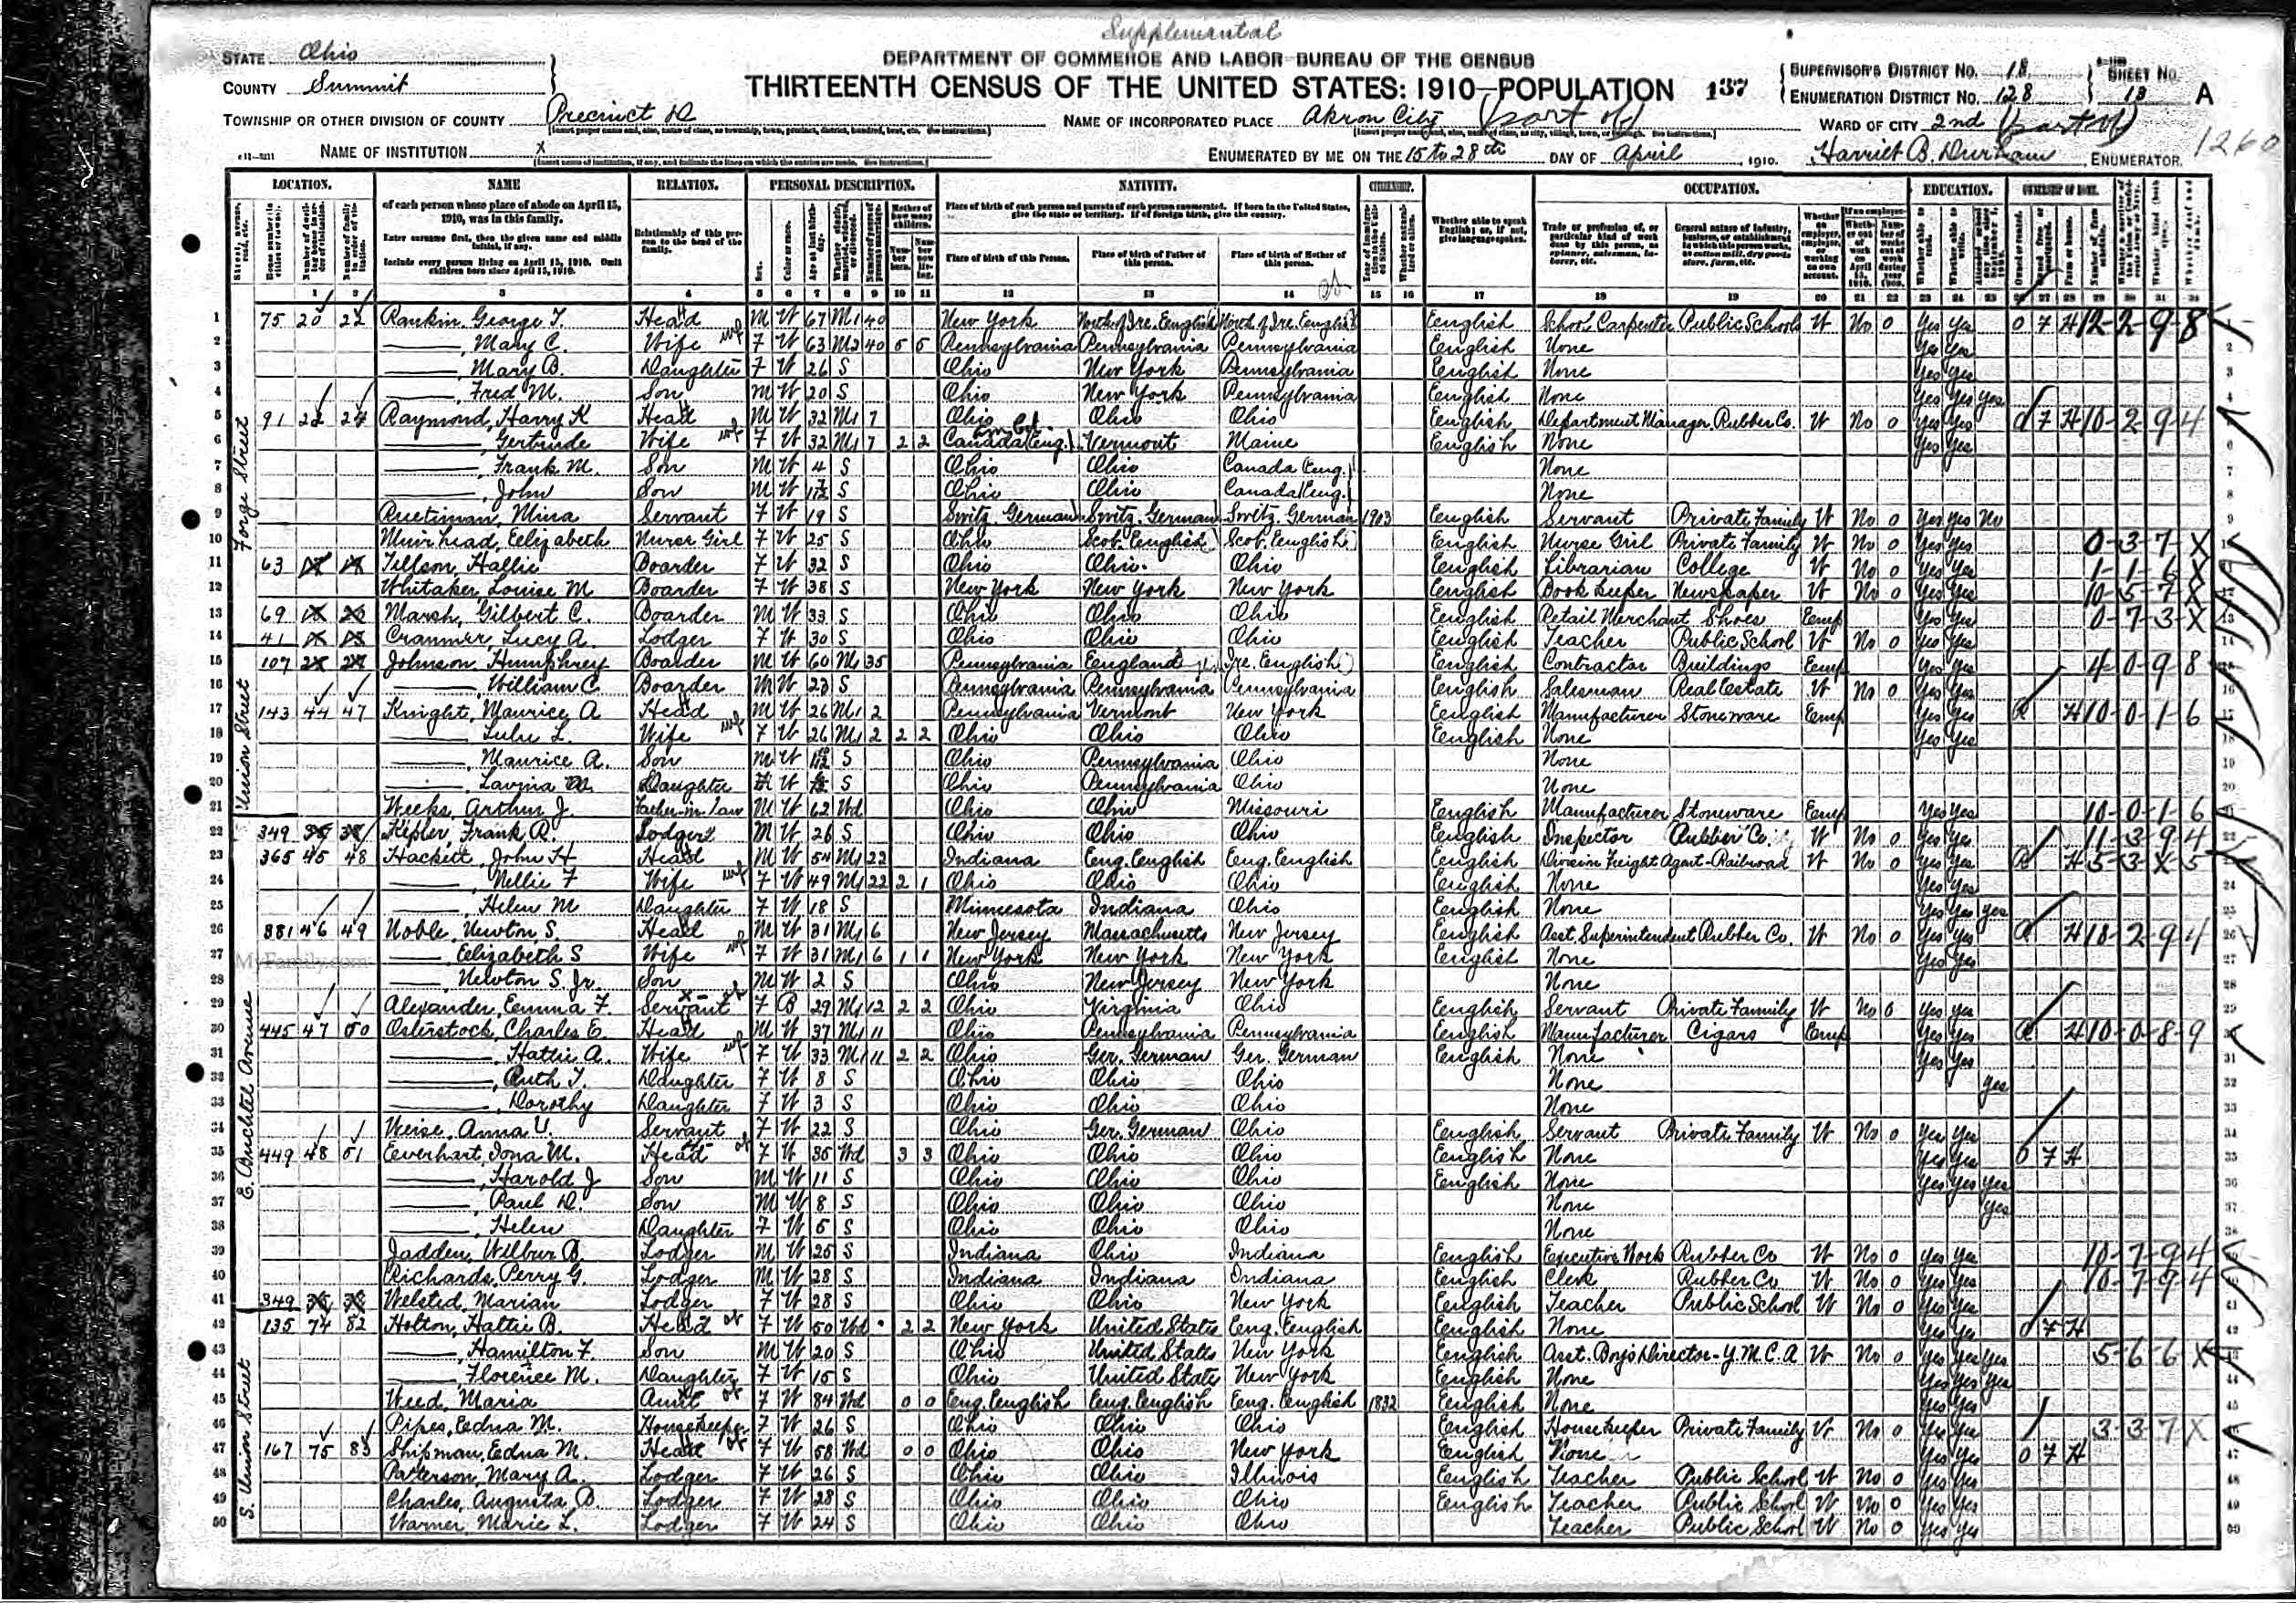 Supplemental
STATE Ohio
COUNTY Summit
DEPARTMENT OF COMMERCE AND LABOR-BUREAU OF THE CENSUS
THIRTEENTH CENSUS OF THE UNITED STATES: 1910-POPULATION 137
SUPERVISOR'S DISTRICT NO. 18
ENUMERATION DISTRICT NO. 128
SHEET NO. 13 A
TOWNSHIP OR OTHER DIVISION OF COUNTY Precinct D
NAME OF INCORPORATED PLACE Akron City (part of)
WARD OF CITY 2nd (part of)
1260
NAME OF INSTITUTION X
ENUMERATED BY ME ON THE 15 to 28th DAY OF April, 1910. Harriet B. Durham, ENUMERATOR.
LOCATION. NAME RELATION. PERSONAL DESCRIPTION. NATIVITY. CITIZENSHIP. OCCUPATION. EDUCATION. OWNERSHIP OF HOME.
of each person whose place of abode on April 15, 1910, was in this family.
Enter surname first, then the given name and middle initial, if any.
Include every person living on April 15, 1910. Omit children born since April 15, 1910.
Relationship of this person to the head of the family.
Place of birth of each person and parents of each person enumerated. If born in the United States, give the state or territory. If of foreign birth, give the country.
Place of birth of this Person. Place of birth of Father of this person. Place of birth of Mother of this person.
Whether able to speak English; or, if not, give language spoken.
Forge Street
1 75 20 22 Rankin, George T. Head M W 67 M1 40 New York North of Ire. English North of Ire. English English School Carpenter Public Schools W No 0 Yes Yes O F H 12-2-9-8
2 Mary C. Wife F W 63 M2 40 5 5 Pennsylvania Pennsylvania Pennsylvania English None Yes Yes
3 Mary B. Daughter F W 26 S Ohio New York Pennsylvania English None Yes Yes
4 Fred M. Son M W 20 S Ohio New York Pennsylvania English None Yes Yes Yes
5 91 22 24 Raymond, Harry K Head M W 32 M1 7 Ohio Ohio Ohio English Department Manager Rubber Co. W No 0 Yes Yes O F H 10-2-9-4
6 Gertrude Wife F W 32 M1 7 2 2 Canada (Eng.) Vermont Maine English None Yes Yes
7 Frank M. Son M W 4 S Ohio Ohio Canada (Eng.) None
8 John Son M W S Ohio Ohio Canada (Eng.) None
9 Ruetiman, Mina Servant F W 19 S Switz. German Switz. German Switz. German 1903 English Servant Private Family W No 0 Yes Yes No
10 Muirhead, Elizabeth Nurse Girl F W 25 S Ohio Scot. English Scot. English English Nurse Girl Private Family W No 0 Yes Yes 0-3-7-X
11 63 Tillson, Hallie Boarder F W 32 S Ohio Ohio Ohio English Librarian College W No 0 Yes Yes 1-1-6-X
12 Whitaker, Louise M Boarder F W 38 S New York New York New York English Book keeper Newspaper W No 0 Yes Yes 10-5-7-X
13 69 Marsh, Gilbert C. Boarder M W 33 S Ohio Ohio Ohio English Retail Merchant Shoes Emp Yes Yes 0-7-3-X
14 41 Cranmer, Lucy A. Lodger F W 30 S Ohio Ohio Ohio English Teacher Public School W No 0 Yes Yes
Union Street
15 107 Johnson, Humphrey Boarder M W 60 M1 35 Pennsylvania England Ire. English English Contractor Buildings Emp Yes Yes 4-0-9-8
16 William C. Boarder M W 23 S Pennsylvania Pennsylvania Pennsylvania English Salesman Real Estate W No 0 Yes Yes
17 143 44 47 Knight, Maurice A Head M W 26 M1 2 Pennsylvania Vermont New York English Manufacturer Stoneware Emp Yes Yes R H 10-0-1-6
18 Lulu L. Wife F W 26 M1 2 2 2 Ohio Ohio Ohio English None Yes Yes
19 Maurice A. Son M W S Ohio Pennsylvania Ohio None
20 Lavina Daughter F W S Ohio Pennsylvania Ohio None
21 Weeks, Arthur J. Father-in-Law M W 62 Wd Ohio Ohio Missouri English Manufacturer Stoneware Emp Yes Yes 10-0-1-6
E. Buchtel Avenue
22 349 Kepler, Frank R. Lodger M W 26 S Ohio Ohio Ohio English Inspector Rubber Co. W No 0 Yes Yes 11-3-9-4
23 365 45 48 Hackett, John H Head M W 54 M1 22 Indiana Eng. English Eng. English English Division Freight Agent-Railroad W No 0 Yes Yes R H 5-3-X-5
24 Nellie F Wife F W 49 M1 22 2 1 Ohio Ohio Ohio English None Yes Yes
25 Helen M Daughter F W 18 S Minnesota Indiana Ohio English None Yes Yes Yes
26 381 46 49 Noble, Newton S. Head M W 31 M1 6 New Jersey Massachusetts New Jersey English Asst. Superintendent Rubber Co. W No 0 Yes Yes R H 10-2-9-4
27 Elizabeth S Wife F W 31 M1 6 1 1 New York New York New York English None Yes Yes
28 Newton S. Jr. Son M W 2 S Ohio New Jersey New York None
29 Alexander, Emma F. Servant F B 29 M1 12 2 2 Ohio Virginia Ohio English Servant Private Family W No 0 Yes Yes
30 445 47 50 Osterstock, Charles E. Head M W 37 M1 11 Ohio Pennsylvania Pennsylvania English Manufacturer Cigars Emp Yes Yes R H 10-0-8-9
31 Hattie A. Wife F W 33 M1 11 2 2 Ohio Ger. German Ger. German English None Yes Yes
32 Ruth T. Daughter F W 8 S Ohio Ohio Ohio None Yes
33 Dorothy Daughter F W 3 S Ohio Ohio Ohio None
34 Weise, Anna U. Servant F W 22 S Ohio Ger. German Ohio English Servant Private Family W No 0 Yes Yes
35 449 48 51 Everhart, Iona M. Head F W 35 Wd 3 3 Ohio Ohio Ohio English None Yes Yes O F H
36 Harold J Son M W 11 S Ohio Ohio Ohio English None Yes Yes Yes
37 Paul D. Son M W 8 S Ohio Ohio Ohio None Yes
38 Helen Daughter F W 5 S Ohio Ohio Ohio None
39 Jadden, Wilbur B. Lodger M W 25 S Indiana Ohio Indiana English Executive Work Rubber Co W No 0 Yes Yes 10-7-9-4
40 Richards, Perry G. Lodger M W 28 S Indiana Indiana Indiana English Clerk Rubber Co W No 0 Yes Yes 10-7-9-4
41 349 Welsted, Marian Lodger F W 28 S Ohio Ohio New York English Teacher Public School W No 0 Yes Yes
S. Union Street
42 135 74 82 Holton, Hattie B. Head F W 50 Wd 2 2 New York United States Eng. English English None Yes Yes O F H
43 Hamilton F. Son M W 20 S Ohio United States New York English Asst. Boys Director-Y.M.C.A W No 0 Yes Yes Yes 5-6-6-X
44 Florence M. Daughter F W 15 S Ohio United States New York English None Yes Yes Yes
45 Weed, Maria Aunt F W 84 Wd 0 0 Eng. English Eng. English Eng. English 1832 English None Yes Yes
46 Pipes, Edna M. Housekeeper F W 26 S Ohio Ohio Ohio English Housekeeper Private Family W No 0 Yes Yes 3-3-7-X
47 167 75 83 Shipman, Edna M. Head F W 58 Wd 0 0 Ohio Ohio New York English None Yes Yes O F H
48 Patterson, Mary A. Lodger F W 26 S Ohio Ohio Illinois English Teacher Public School W No 0 Yes Yes
49 Charles, Augusta B. Lodger F W 28 S Ohio Ohio Ohio English Teacher Public School W No 0 Yes Yes
50 Warner, Marie L. Lodger F W 24 S Ohio Ohio Ohio Teacher Public School W No 0 Yes Yes
MyFamily.com